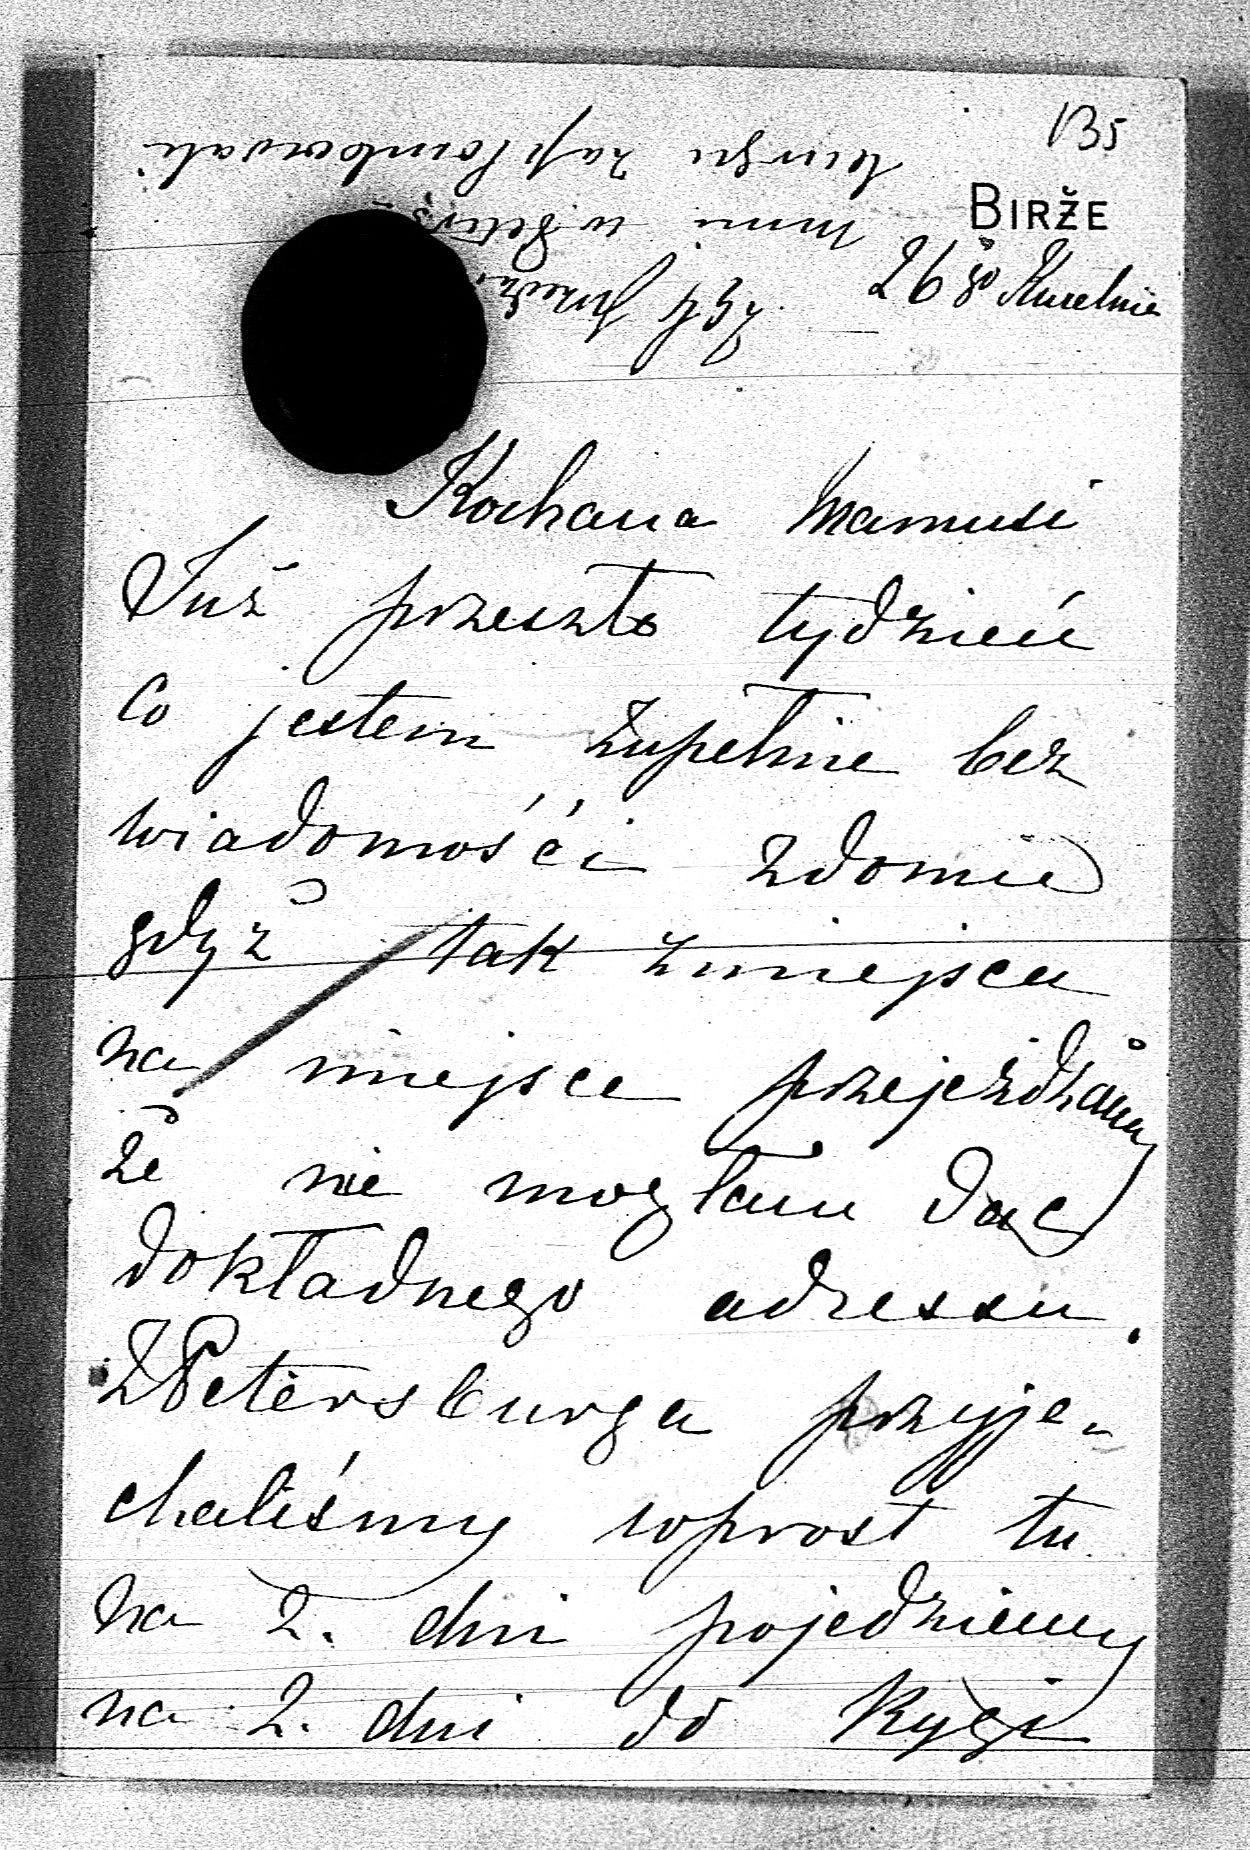 135
BIRŽE
26 go Kwietnia
Kochana Mamusi
Już przeszło tydzień
co jestem zupełnie bez
wiadomości zdomu
gdyż tak zmiejsca
na miejsce przejeżdżamy
że nie mogłam dać
dokładnego adressu.
Z Petersburga przyje-
chaliśmy wprost tu
na 2. dni pojedziemy
na 2. dni do Rygi
Zęby przedzi
mni w Peters
burgu zaplombowali